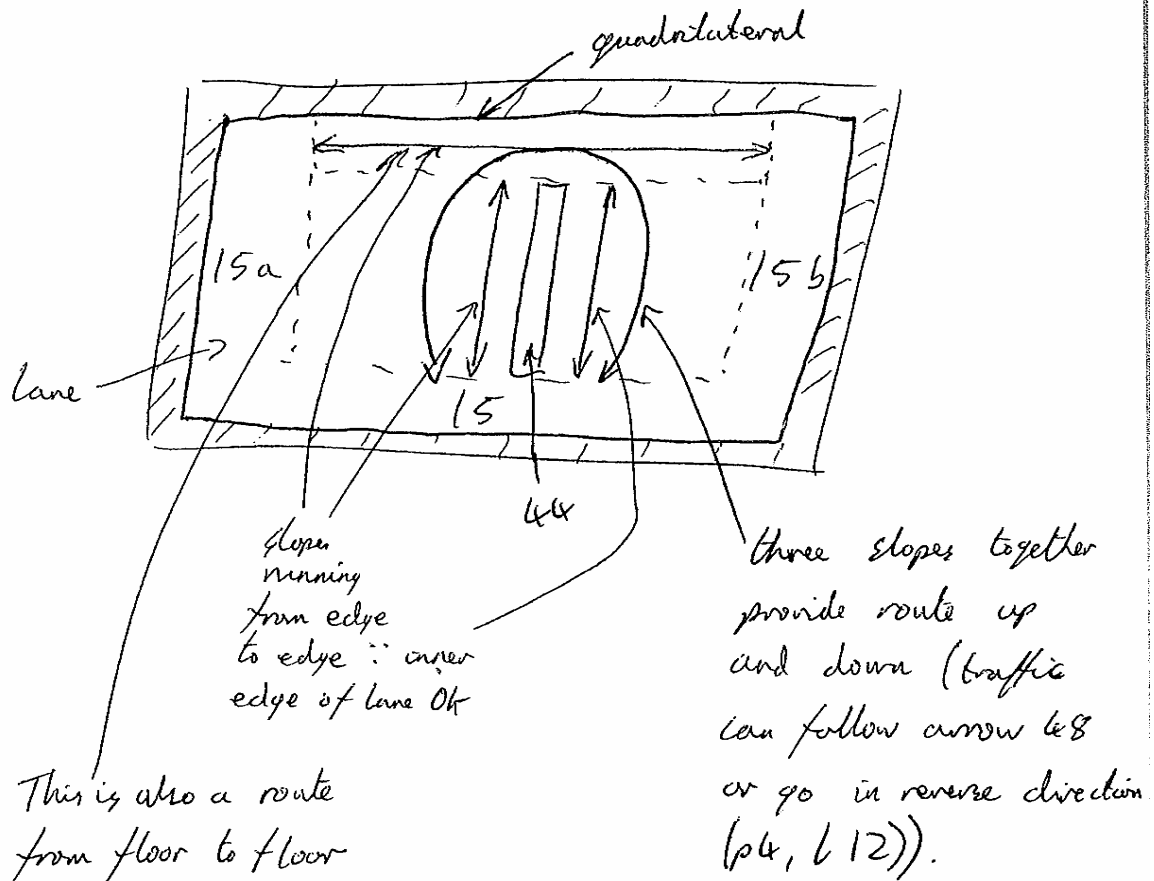 quadrilateral
15a
15b
lane
15
44
slopes
running
from edge
to edge ∵ inner
edge of lane Ok
three slopes together
provide route up
and down (traffic
can follow arrow 48
or go in reverse direction
(p4, l 12)).
This is also a route
from floor to floor